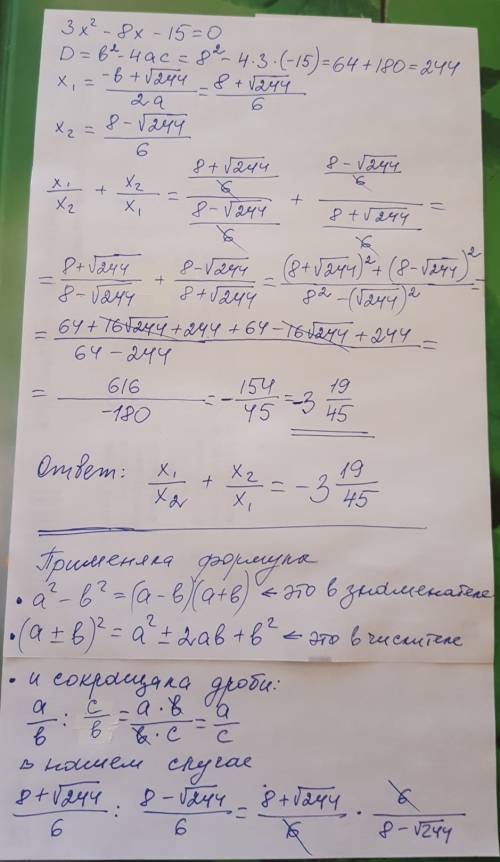 3x² - 8x - 15 = 0
D = b² - 4ac = 8² - 4·3·(-15) = 64 + 180 = 244
x₁ = (-b + √244)/(2a) = (8 + √244)/6
x₂ = (8 - √244)/6
x₁/x₂ + x₂/x₁ = ((8 + √244)/6)/((8 - √244)/6) + ((8 - √244)/6)/((8 + √244)/6) =
= (8 + √244)/(8 - √244) + (8 - √244)/(8 + √244) = ((8 + √244)² + (8 - √244)²)/(8² - (√244)²) =
= (64 + 16√244 + 244 + 64 - 16√244 + 244)/(64 - 244) =
= 616/(-180) = - 154/45 = -3 19/45
Ответ: x₁/x₂ + x₂/x₁ = -3 19/45
Применяла формулы
• a² - b² = (a - b)(a + b) ← это в знаменателе
• (a ± b)² = a² ± 2ab + b² ← это в числителе
• и сокращала дроби:
a/b : c/b = (a·b)/(b·c) = a/c
в нашем случае
(8 + √244)/6 : (8 - √244)/6 = (8 + √244)/6 · 6/(8 - √244)